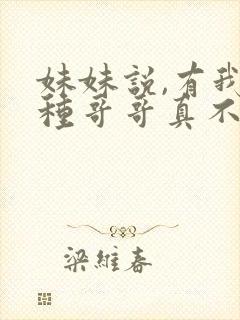 妹妹說,有我
種哥哥真不
梁維春